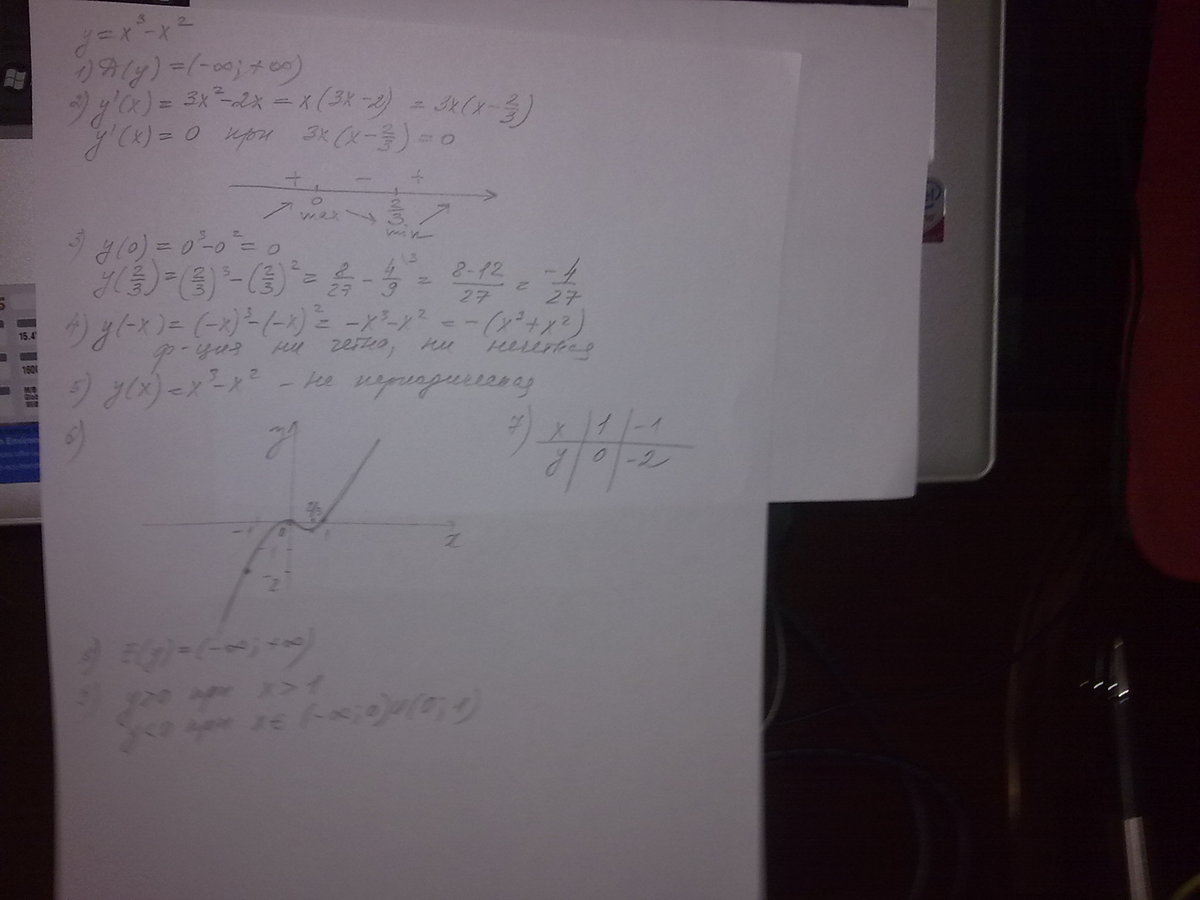 y = x³ - x²
1) D(y) = (-∞; +∞)
2) y'(x) = 3x² - 2x = x(3x - 2) = 3x(x - 2/3)
y'(x) = 0 при 3x(x - 2/3) = 0
+ - +
0 2/3
max min
3) y(0) = 0³ - 0² = 0
y(2/3) = (2/3)³ - (2/3)² = 8/27 - 4/9 \3 = 8-12/27 = -4/27
4) y(-x) = (-x)³ - (-x)² = -x³ - x² = -(x³ + x²)
ф-ция ни четна, ни нечетная
5) y(x) = x³ - x² - не периодическая
6)
y
-1 0 2/3 1 x
-1
-2
7) x | 1 | -1
y | 0 | -2
E(y) = (-∞; +∞)
y>0 при x > 1
y<0 при x ∈ (-∞; 0)∪(0; 1)
15.4"